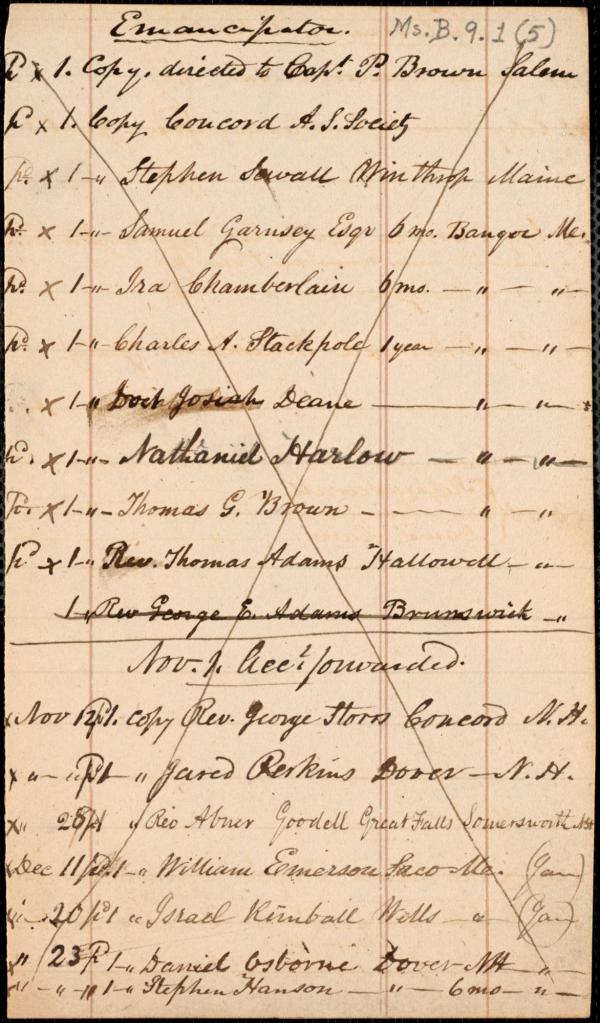 Emancipator.
Ms. B. 9. 1 (5)
Pd x 1. Copy. directed to Capt P. Brown Salem
Pd x 1. Copy Concord A. S. Society
Pd x 1 - " Stephen Sewall Winthrop Maine
Pd x 1 - " - Samuel Garnsey Esqr 6 mo. Bangor Me.
Pd x 1 - " - Ira Chamberlain 6 mo. - " - " -
Pd x 1 - " - Charles A. Stackpole 1 year - " - " -
x 1 - " Josiah Deane - " - " -
Pd. x 1 - " - Nathaniel Harlow - " - " -
Pd x 1 - " - Thomas G. Brown - - " - "
Pd x 1 - " Rev. Thomas Adams Hallowell - " -
1 " Rev George E. Adams Brunswick - "
Nov. 1. Acct forwarded.
x Nov 12 Pd 1. copy Rev. George Storrs Concord N. H.
x " - " Pd 1 - " Jared Perkins Dover - N. H.
x " 28 Pd 1 " Rev Abner Goodell Great Falls Somersworth NH
x Dec 11 Pd. 1 - " William Emerson Saco Me. (Jan)
x " - 20 Pd 1 " Israel Kimball Wells - " (Jan)
x " 23 Pd 1 - " Daniel Osborne Dover NH - "
x " - " " 1 - " Stephen Hanson - " - 6 mo - " -